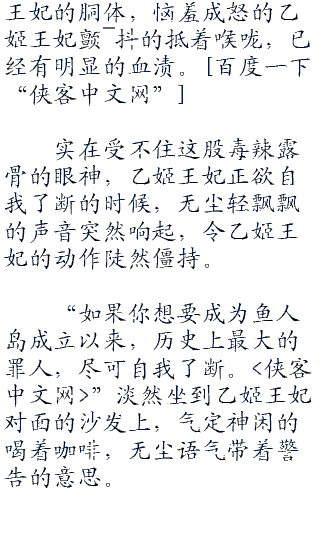 王妃的胴体，恼羞成怒的乙
姬王妃颤¯抖的抵着喉咙，已
经有明显的血渍。[百度一下
“侠客中文网”]
实在受不住这股毒辣露
骨的眼神，乙姬王妃正欲自
我了断的时候，无尘轻飘飘
的声音突然响起，令乙姬王
妃的动作陡然僵持。
“如果你想要成为鱼人
岛成立以来，历史上最大的
罪人，尽可自我了断。<侠客
中文网>”淡然坐到乙姬王妃
对面的沙发上，气定神闲的
喝着咖啡，无尘语气带着警
告的意思。